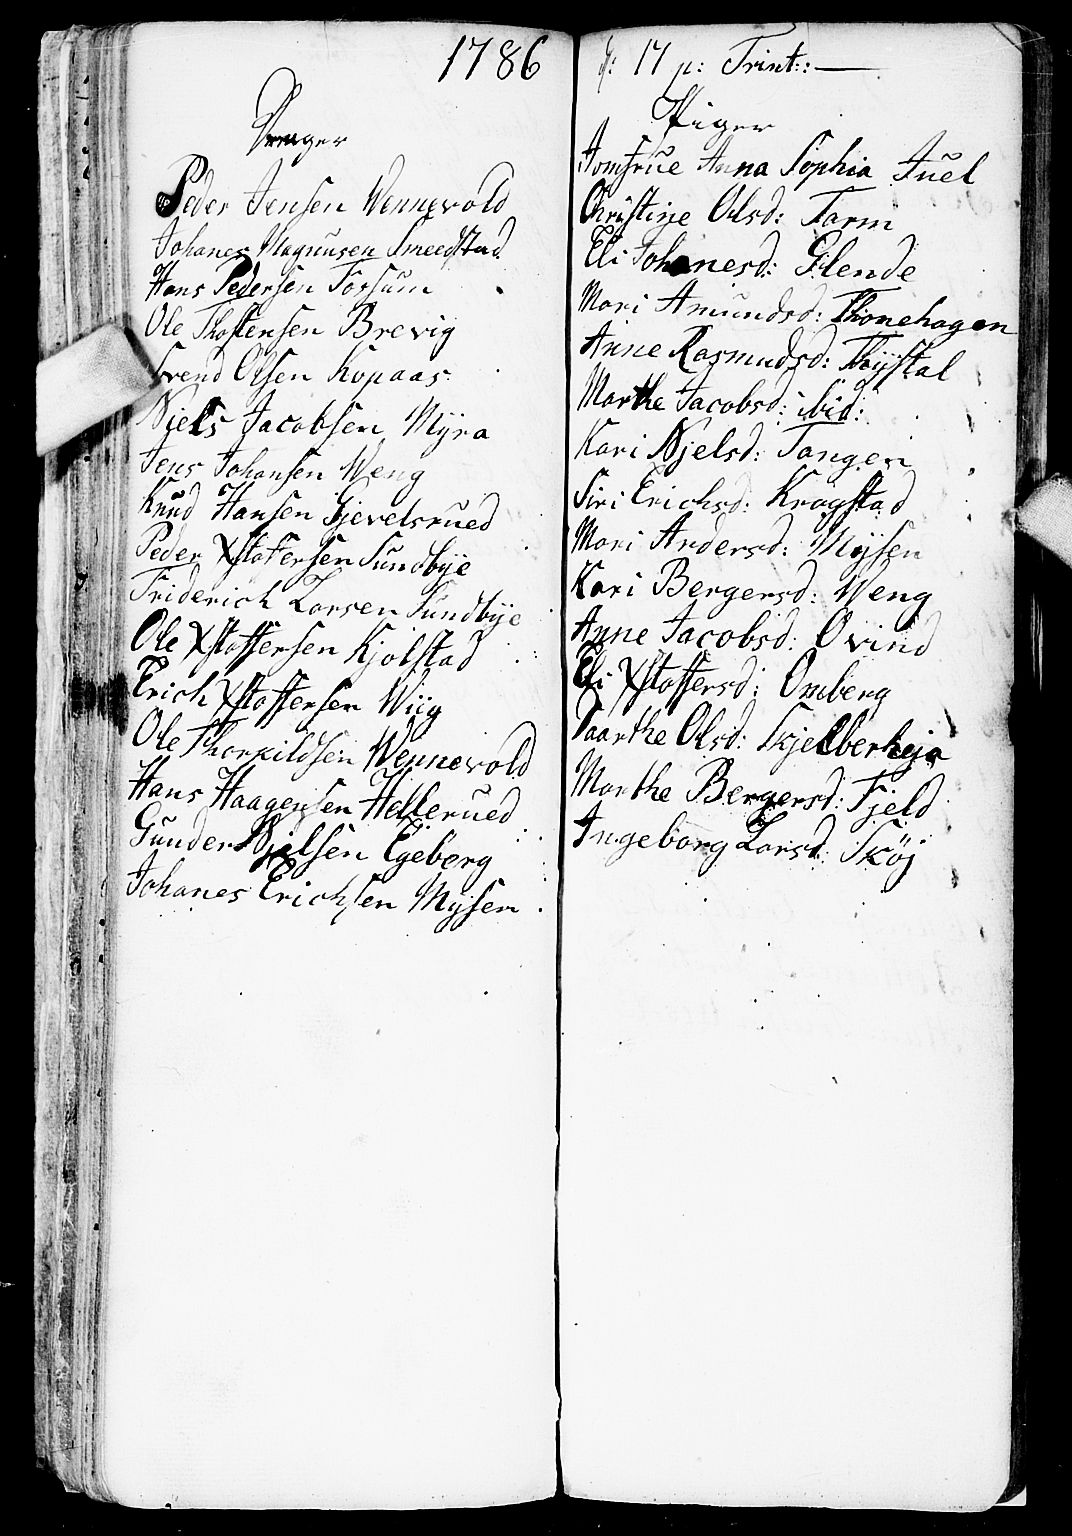 1786
Drenger
Peder Jensen Wennevold
Johanes Magnusen Smedstad
Hans Pedersen Fossum
Ole Thostensen Brevig
Svend Olsen Kopaas
Niels Jacobsen Myra
Jens Johansen Weng
Knud Hansen Gjevelsrued
Peder Xstoffersen Sundbÿe
Friderich Larsen Sundbÿe
Ole Xstoffersen Kjolstad
Erich Xstoffersen Wiig
Ole Thorkildsen Wennevold
Hans Haagensen Hellerued
Gunder Njelsen Egeberg
Johanes Erichsen Mÿsen
17 p: Trint::
Piger
Jomfrue Anna Sophia Juel
Christine Olsd: Torm
Eli Johanesd: Glende
Mari Amundsd: Thonehagen
Anne Rasmudsd: Thÿstal
Marthe Jacobsd: ibid:
Kari Njelsd: Tangen
Siri Erichsd: Kragstad
Mari Andersd: Mÿsen
Kari Bergersd: Weng
Anne Jacobsd: Ovind
Eli Xstoffersd: Omberg
Olsd:
Marthe Bergersd: Fjeld
Ingeborg Larsd: Skøj